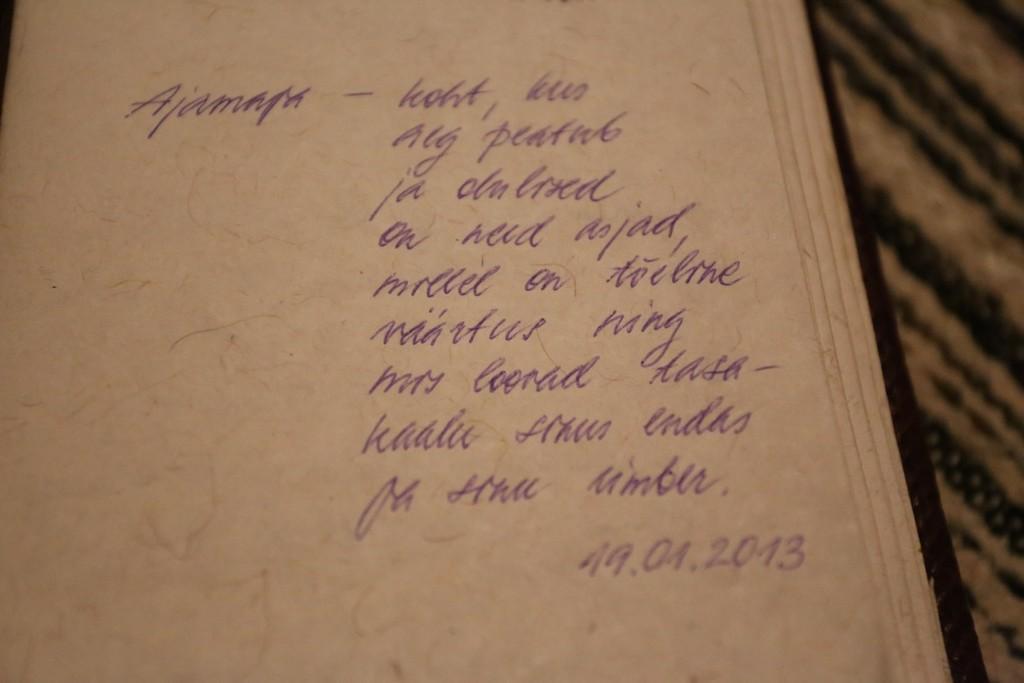 Ajamaja – koht, kus
aeg peatub
ja olulised
on need asjad,
millel on tõeline
väärtus ning
mis loovad tasa-
kaalu sinus endas
ja sinu ümber.
19.01.2013